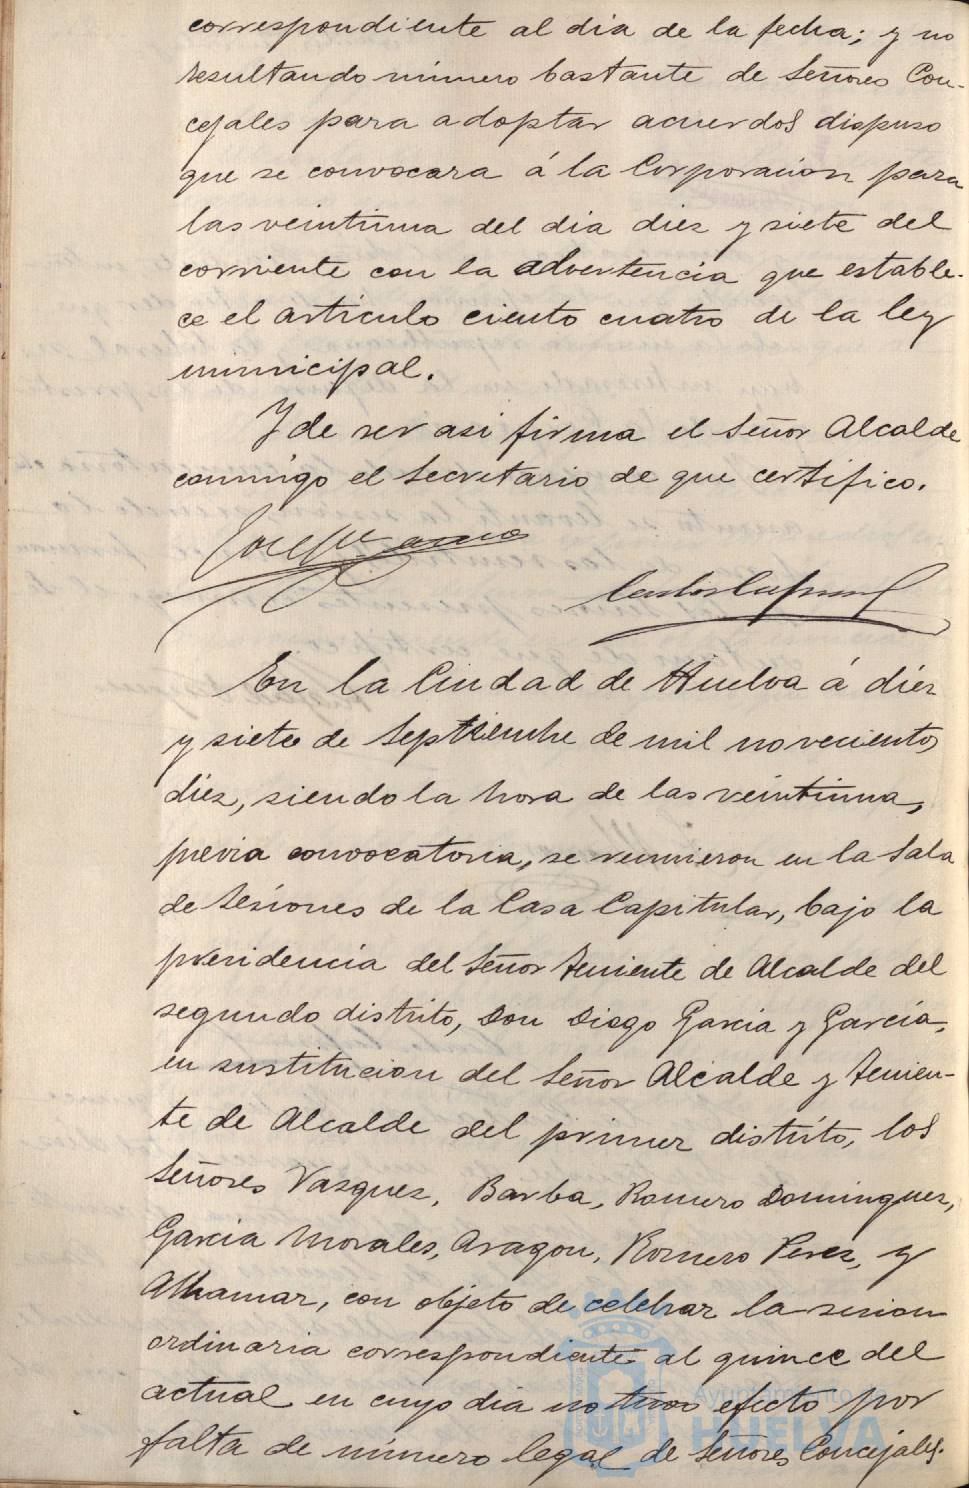 correspondiente al dia de la fecha; y no
resultando número bastante de Señores Con-
cejales para adoptar acuerdos dispuso
que se convocara á la Corporacion para
las veintiuna del dia diez y siete del
corriente con la advertencia que estable-
ce el artículo ciento cuatro de la ley
municipal.
Y de ser asi firma el Señor Alcalde
conmigo el Secretario de que certifico.
En la Ciudad de Huelva á diez
y siete de Septiembre de mil novecientos
diez, siendo la hora de las veintiuna,
previa convocatoria, se reunieron en la Sala
de Sesiones de la Casa Capitular, bajo la
presidencia del Señor Teniente de Alcalde del
segundo distrito, Don Diego Garcia y García,
en sustitucion del Señor Alcalde y Tenien-
te de Alcalde del primer distrito, los
Señores Vazquez, Barba, Romero Dominguez,
Garcia Morales, Aragon, Romero Perez, y
Alhamar, con objeto de celebrar la sesion
ordinaria correspondiente al quince del
actual en cuyo dia no tuvo efecto por
falta de número legal de Señores Concejales.
Ayuntamiento
HUELVA